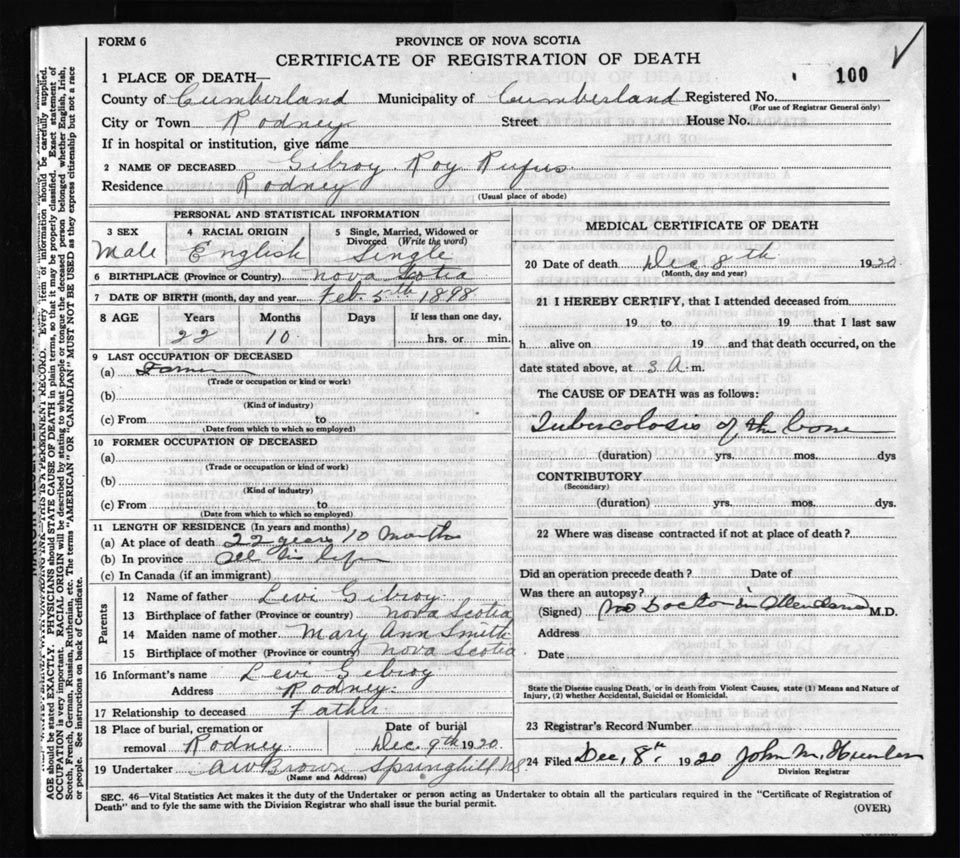 FORM 6
PROVINCE OF NOVA SCOTIA
CERTIFICATE OF REGISTRATION OF DEATH
100
1 PLACE OF DEATH—
County of Cumberland Municipality of Cumberland Registered No.
(For use of Registrar General only)
City or Town Rodney Street House No.
If in hospital or institution, give name
2 NAME OF DECEASED Gilroy Roy Rufus
Residence Rodney
(Usual place of abode)
PERSONAL AND STATISTICAL INFORMATION
3 SEX 4 RACIAL ORIGIN 5 Single, Married, Widowed or Divorced (Write the word)
Male English Single
6 BIRTHPLACE (Province or Country) Nova Scotia
7 DATE OF BIRTH (month, day and year) Feb. 5th 1898
8 AGE Years Months Days If less than one day,
22 10 hrs. or min.
9 LAST OCCUPATION OF DECEASED
(a) Farmer
(Trade or occupation or kind or work)
(b)
(Kind of industry)
(c) From to
(Date from which to which so employed)
10 FORMER OCCUPATION OF DECEASED
(a)
(Trade or occupation or kind of work)
(b)
(Kind of industry)
(c) From to
(Date from which to which so employed)
11 LENGTH OF RESIDENCE (In years and months)
(a) At place of death 22 years 10 months
(b) In province All his life
(c) In Canada (if an immigrant)
Parents
12 Name of father Levi Gilroy
13 Birthplace of father (Province or country) Nova Scotia
14 Maiden name of mother. Mary Ann Smith
15 Birthplace of mother (Province or country) Nova Scotia
16 Informant's name Levi Gilroy
Address Rodney.
17 Relationship to deceased Father
18 Place of burial, cremation or Date of burial
removal Rodney Dec. 9th 1920.
19 Undertaker AW Brown Springhill NS
(Name and Address)
MEDICAL CERTIFICATE OF DEATH
20 Date of death Dec 8th 1920
(Month, day and year)
21 I HEREBY CERTIFY, that I attended deceased from
19 to 19 that I last saw
h alive on 19 and that death occurred, on the
date stated above, at 3 A. m.
The CAUSE OF DEATH was as follows:
Tubercolosis of the bone
(duration) yrs. mos. dys
CONTRIBUTORY
(Secondary)
(duration) yrs. mos. dys.
22 Where was disease contracted if not at place of death?
Did an operation precede death? Date of
Was there an autopsy?
(Signed) No Doctor in Attendance M.D.
Address
Date
State the Disease causing Death, or in death from Violent Causes, state (1) Means and Nature of
Injury, (2) whether Accidental, Suicidal or Homicidal.
23 Registrar's Record Number
24 Filed Dec, 8th 1920 John M.
Division Registrar
SEC. 46—Vital Statistics Act makes it the duty of the Undertaker or person acting as Undertaker to obtain all the particulars required in the "Certificate of Registration of
Death" and to fyle the same with the Division Registrar who shall issue the burial permit.
(OVER)
THIS IS A PERMANENT RECORD. Every item of information should be carefully supplied.
AGE should be stated EXACTLY. PHYSICIANS should STATE CAUSE OF DEATH in plain terms, so that it may be properly classified. Exact statement of
OCCUPATION is very important. RACIAL ORIGIN will be described by stating to what people or tongue the deceased person belonged whether English, Irish,
Scotch, French, German, Russian, Ruthenian, etc. The terms "AMERICAN" OR "CANADIAN" MUST NOT BE USED as they express citizenship but not a race
or people. See instructions on back of Certificate.